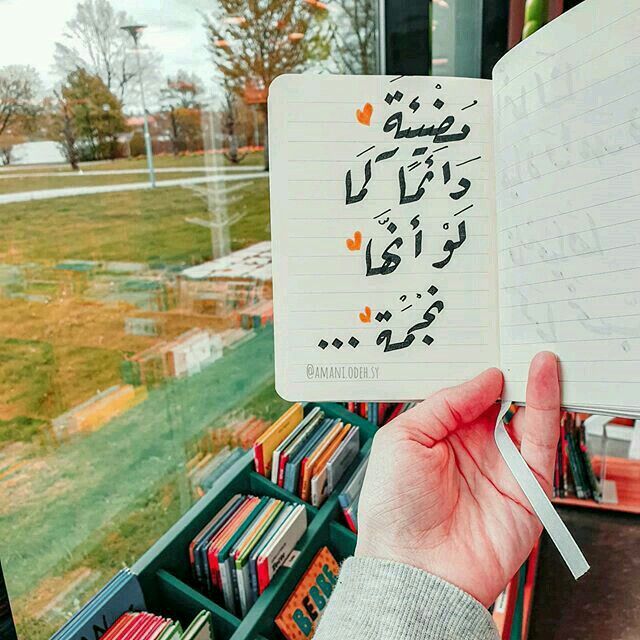 مُضْيئَةً
دَائمًا كَمَا
لَوْ أنهَّا
نَجْمَة ...
@AMANI.ODEH.SY
BEBE